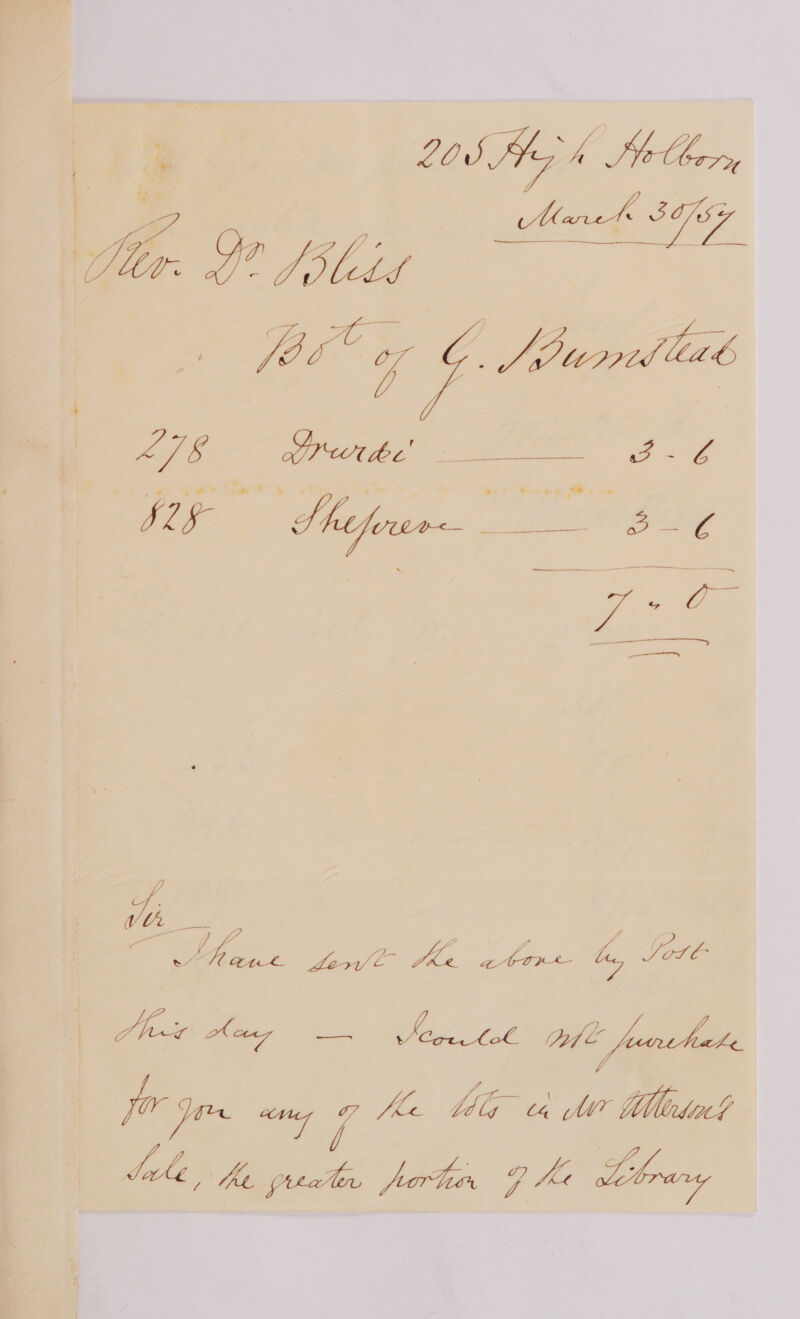 205 High Holborn
March 30/57
Rev. Dr. Bliss
Bot of G. Bumstead
278 Drurdé 3 - 6
828 Shepreve 3 - 6
7 " 0
Sir
I have sent the above by Post
this day — I could not purchase
for you any of the lots in Mr Utterson's
Sale, the greater portion of the Library